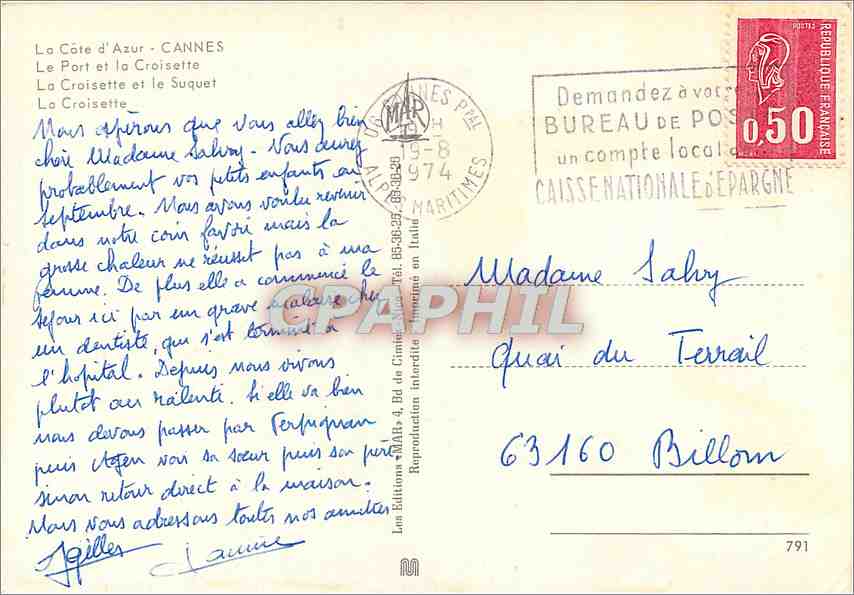 La Côte d'Azur - CANNES
Le Port et la Croisette
La Croisette et le Suquet
La Croisette
Nous espérons que vous allez bien
chère Madame Salvy. Vous aurez
probablement vos petits enfants en
septembre. Nous avons voulu revenir
dans notre coin favori mais la
grosse chaleur ne réussit pas à ma
femme. De plus elle a commencé le
séjour ici par un grave malaise chez
un dentiste, qui s'est terminé à
l'hopital. Depuis nous vivons
plutot au ralenti. Si elle va bien
nous devons passer par Perpignan
puis Agen voir sa sœur puis son père
sinon retour direct à la maison.
Nous vous adressons toutes nos amitiés
Gilles
Janine
Les Editions «MAR» 4, Bd de Cimiez - Nice - Tél. 85-36-25
Reproduction interdite - Imprimé en Italie
MAR
06 CANNES Pal
19-8
1974
ALPES MARITIMES
Demandez à votre
BUREAU DE POS
un compte local
CAISSE NATIONALE D'ÉPARGNE
POSTES
REPUBLIQUE FRANCAISE
0,50
CPAPHIL
Madame Salvy
Quai du Terrail
63160 Billom
791